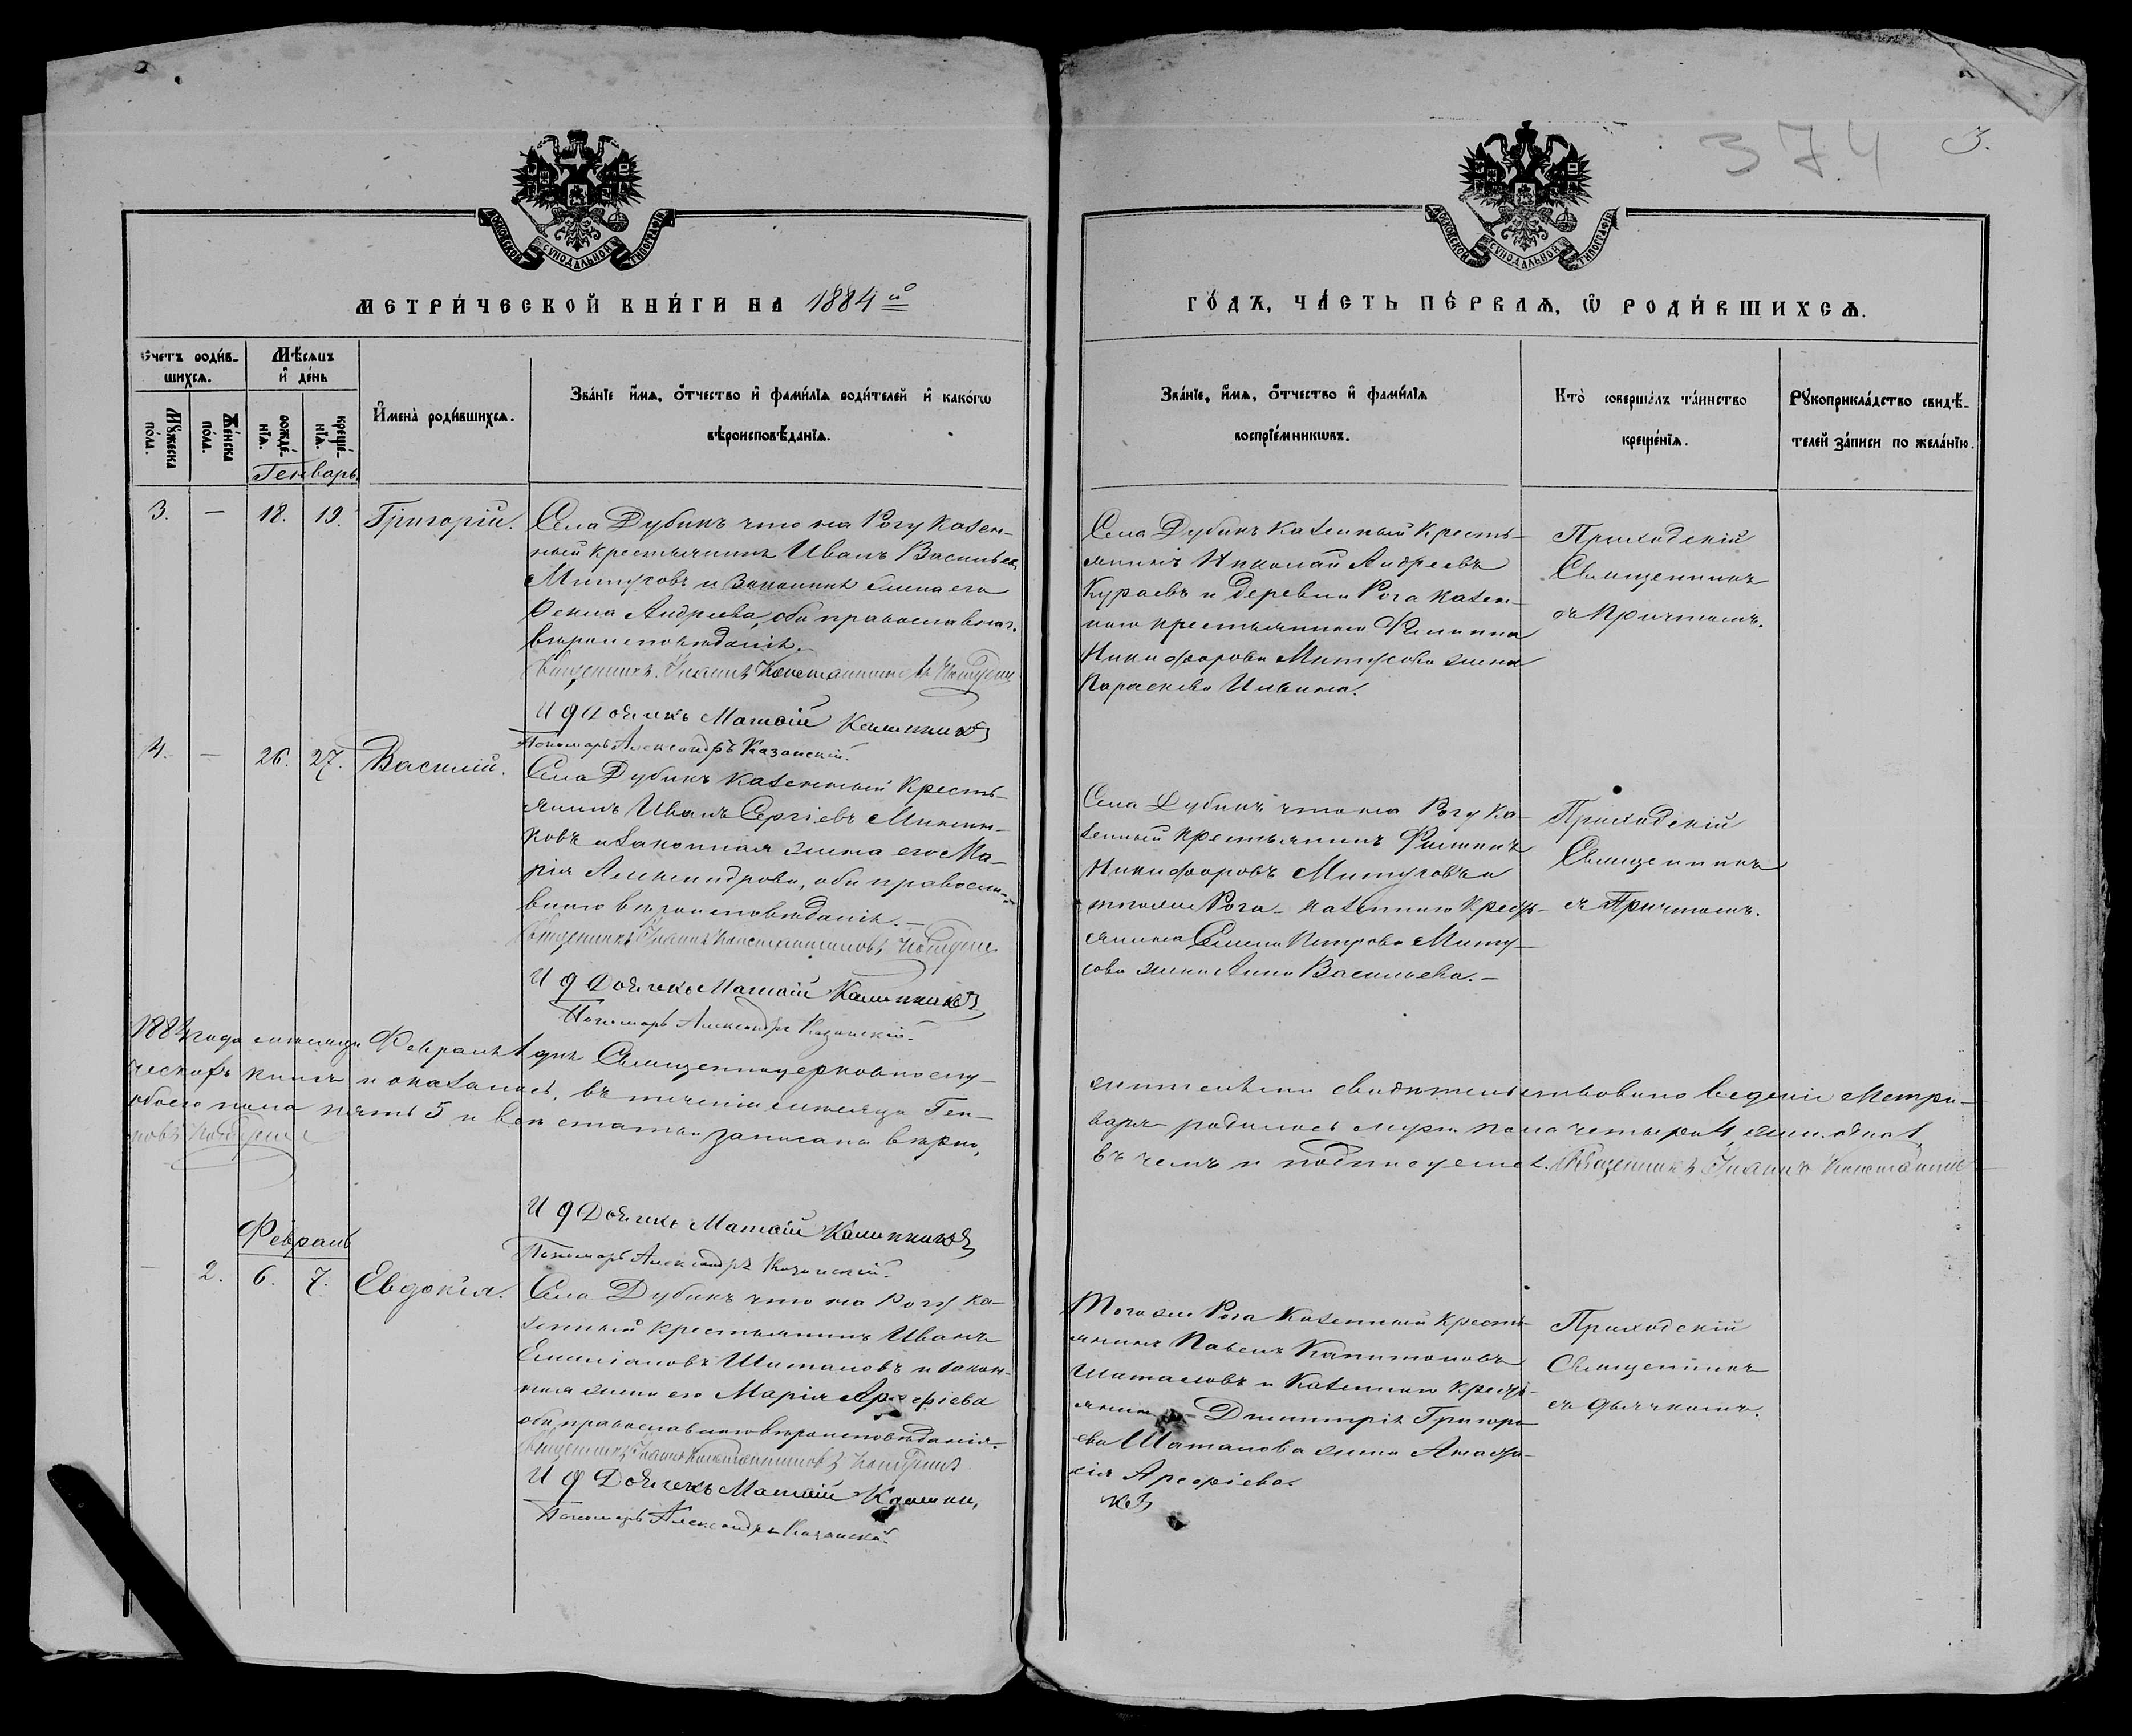 374
3.
МОСКОВСКОЙ СУНОДАЛЬНОЙ ТИПОГРАФІИ
МОСКОВСКОЙ СУНОДАЛЬНОЙ ТИПОГРАФІИ
МЕТРИ́ЧЕСКОЙ КНИ́ГИ НА 1884й
ГО́ДЪ, ЧА́СТЬ ПЕ́РВАѦ, Ѿ РОДИ́ВШИХСѦ.
Счетъ роди́в-
шихсѧ.
Мѣсѧцъ
и҆ де́нь
Мꙋжеска
по́ла.
Же́нска
по́ла.
рожде́-
нїѧ.
креще́-
нїѧ.
И҆мена̀ роди́вшихсѧ.
Зва́нїе и҆́мѧ, о҆́тчество и҆ фами́лїѧ роди́телей и҆ како́гѡ
вѣроисповѣ́данїѧ.
Зва́нїе, и҆́мѧ, о҆́тчество и҆ фами́лїѧ
воспрїе́мникѡвъ.
Кто̀ соверша́лъ та́инство
креще́нїѧ.
Рꙋкоприкла́дство свидѣ́-
телей за́писи по жела́нїю.
Генварь.
3. — 18. 19. Григорій.
Села Дубикъ что на Рогу казен-
ный крестьянинъ Иванъ Васильев
Митусовъ и законная жена его
Андреева, оба православнаг.
вѣроисповѣданія.
Священникъ Іоаннъ Константиновъ
И д Дьячекъ Матѳій Калинниковъ
Пономарь Александръ Казанскій.
Села Дубикъ казенный кресть-
янинъ Николай Андреевъ
Кураевъ и деревни Рога казен-
наго крестьянина Филиппа
Никифорова Митусова жена
Параскева Ильина.
Приходскій
Священникъ
съ Причтомъ.
4. — 26. 27. Василій.
Села Дубикъ казенный кресть-
янинъ Иванъ Сергіевъ
и законная жена его Ма-
рія Александрова, оба правосла-
внаго вѣроисповѣданія.—
Священникъ Іоаннъ Константиновъ
И д Дьячекъ Матѳій Калинниковъ
Пономарь Александръ Казанскій.
Села Дубикъ что на Рогу ка-
зенный крестьянинъ Филиппъ
Никифоровъ Митусовъ и
тогоже Рога казеннаго кресть-
янина Семена Петрова Миту-
сова жена Анна Васильева.—
Приходскій
Священникъ
съ Причтомъ.
1884 года мѣсяца Февраля 1 дня Священноцерковнослу-
жителями свидѣтельствовано веденіе Метри-
ческихъ книгъ и оказалось, въ теченіи мѣсяца Ген-
варя родилось муж. пола четыре 4, жен. одна 1,
обоего пола пять 5 и все статьи записаны вѣрно,
въ чемъ и подписуемся. Священникъ Іоаннъ Константи-
новъ
И д Дьячекъ Матѳій Калинниковъ
Пономарь Александръ Казанскій.
Февраль
— 2. 6. 7. Евдокія.
Села Дубикъ что на Рогу ка-
зенный крестьянинъ Иванъ
Емиліановъ Шаталовъ и закон-
ная жена его Марія Арефіева
оба православнаго вѣроисповѣданія.
Священникъ Іоаннъ Константиновъ
И д Дьячекъ Матѳій Калинни,
Пономарь Александръ Казанскій.
Тогоже Рога казенный кресть-
янинъ Павелъ Капитоновъ
Шаталовъ и казеннаго кресть-
янина Димитрія Григорь-
ева Шаталова жена
Арефіева.
ковъ
Приходскій
Священникъ
съ дьячкомъ.